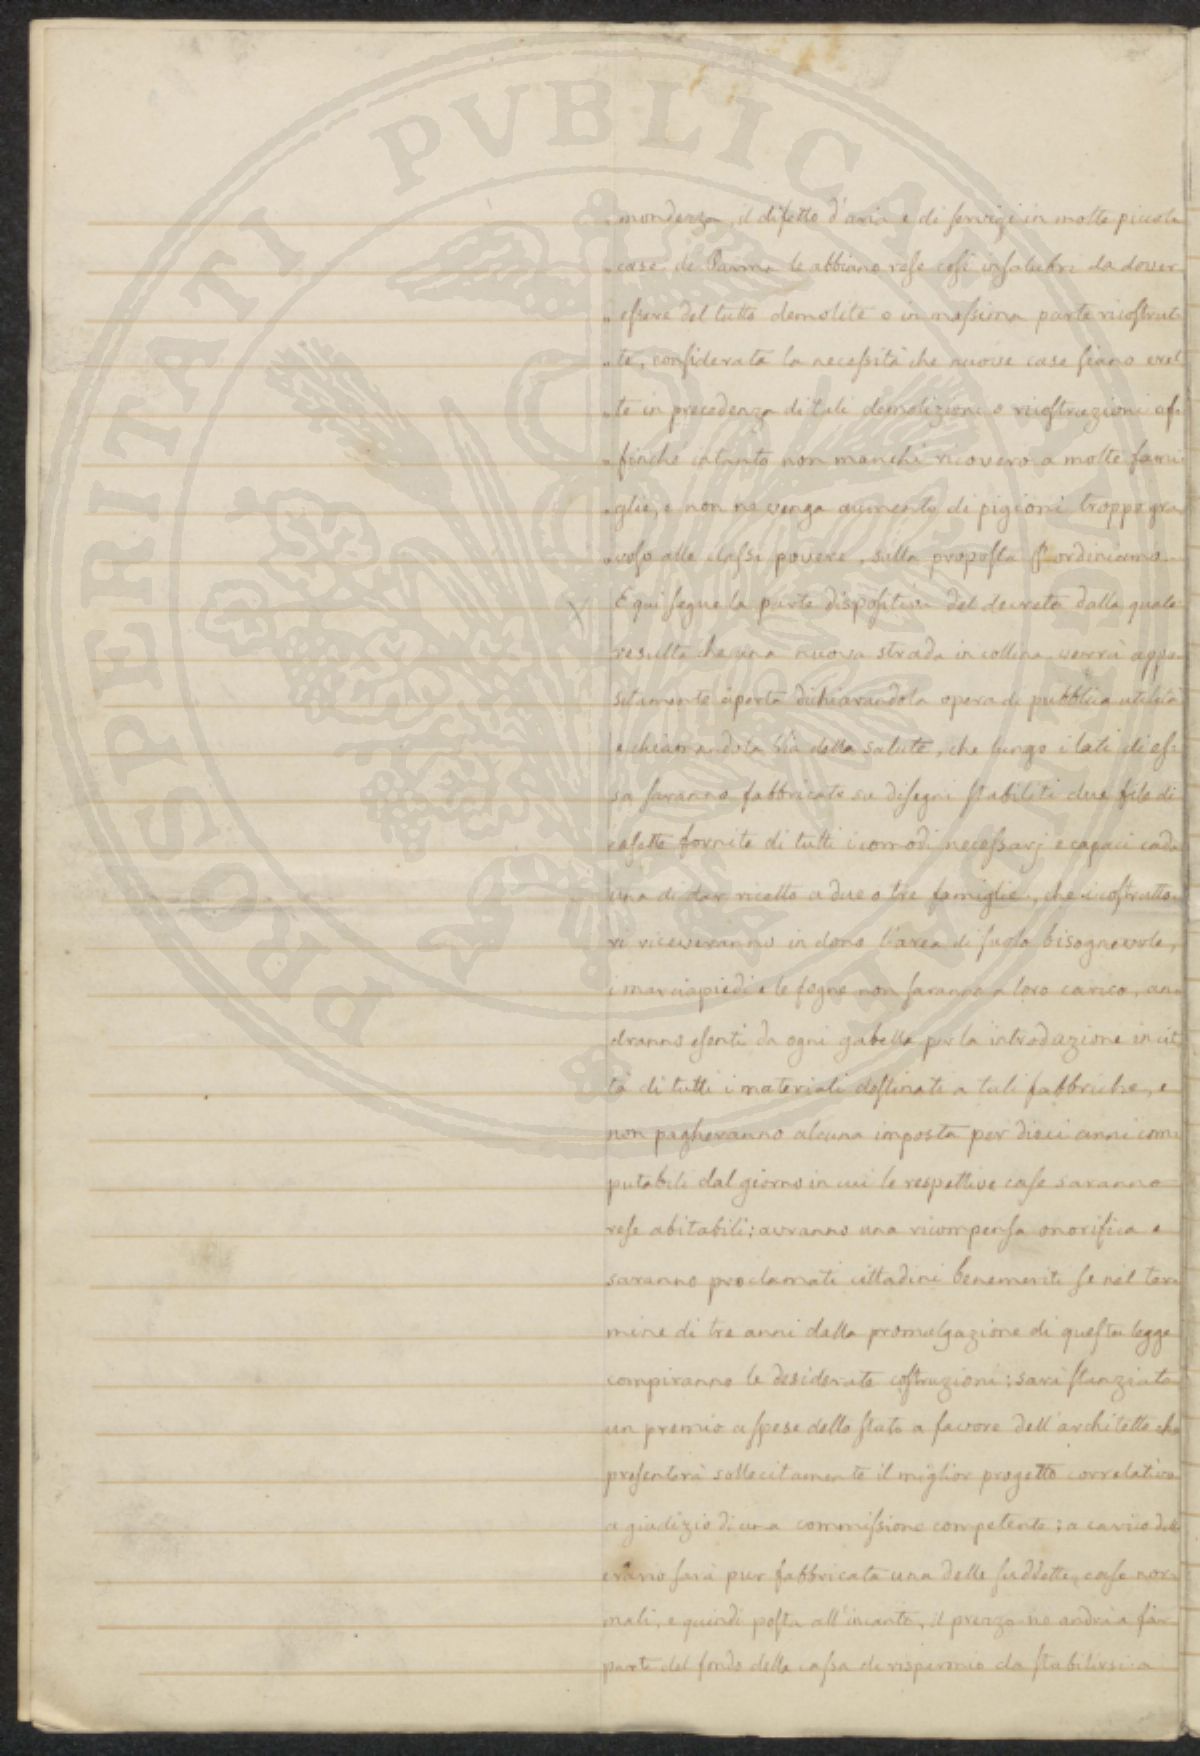 „ mondezza, il difetto d'aria e di servigi in molte piccole
„ case di Parma le abbiano rese così insalubri da dover
„ essere del tutto demolite o in massima parte ricostrut-
„ te, considerata la necessità che nuove case siano eret-
„ te in precedenza di tali demolizioni o ricostruzioni af-
„ finchè intanto non manchi ricovero a molte fami-
„ glie, e non ne venga aumento di pigioni troppo gra-
„ voso alle classi povere, sulla proposta ordiniamo
E qui segue la parte dispositiva del decreto dalla quale
resulta che una nuova strada in collina verrà appo-
sitamente aperta dichiarandola opera di pubblica utilità
e chiamandola Via della salute, che lungo i lati di es-
sa saranno fabbricate su disegni stabiliti due file di
casette fornite di tutti i comodi necessarj e capaci cad-
una di dar ricetto a due o tre famiglie, che i costrutto-
ri riceveranno in dono l'area di suolo bisognevole,
i marciapiedi e le fogne non saranno a loro carico, an-
dranno esenti da ogni gabella per la introduzione in cit-
tà di tutti i materiali destinati a tali fabbriche, e
non pagheranno alcuna imposta per dieci anni com-
putabili dal giorno in cui le respettive case saranno
rese abitabili: avranno una ricompensa onorifica e
saranno proclamati cittadini benemeriti se nel ter-
mine di tre anni dalla promulgazione di questa legge
compiranno le desiderate costruzioni: sarà stanziato
un premio a spese dello stato a favore dell'architetto che
presenterà sollecitamente il miglior progetto correlativo
a giudizio di una commissione competente: a carico dello
erario sarà pur fabbricata una delle suddette case nor-
mali, e quindi posta all'incanto, il prezzo ne andrà a far
parte del fondo della cassa di risparmio da stabilirsi a
PROSPERITATI PVBLICAE